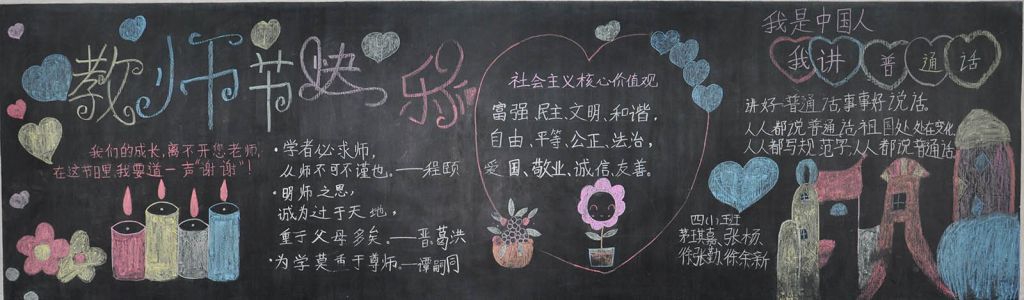 教师节快乐
我们的成长,离不开您老师,
在这节日里我要道一声“谢谢”!
·学者必求师,
从师不可不谨也。——程颐
·明师之恩,
诚为过于天地,
重于父母多矣。——晋葛洪
·为学莫重于尊师。——谭嗣同
社会主义核心价值观
富强、民主、文明、和谐,
自由、平等、公正、法治,
爱国、敬业、诚信、友善。
我是中国人
我讲普通话
讲好普通话事事好说话。
人人都说普通话,祖国处处在变化
人人都写规范字,人人都说普通话
四(小)班
茅琪嘉、张杨、
徐张勤、徐乐新